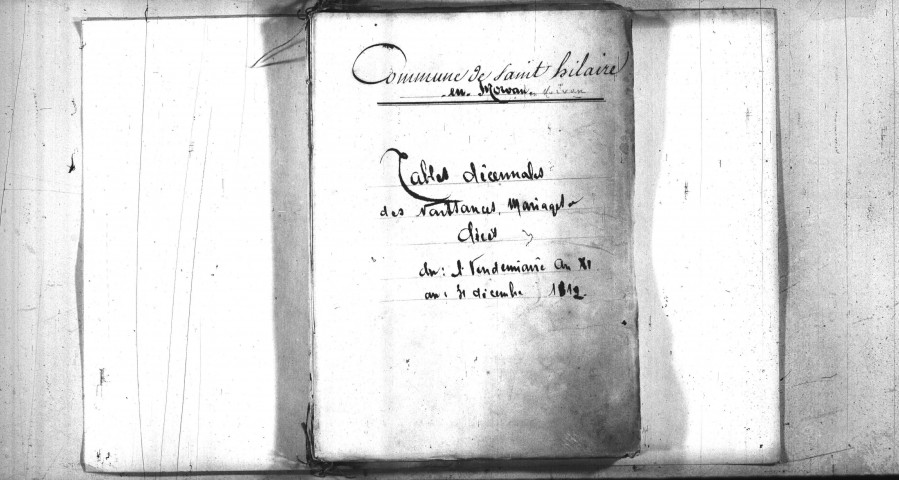 Commune de Saint hilaire
en Morvan
Tables décennales
des Naissances, Mariages
Décès
du: 1 Vendemiaire An XI
au: 31 décembre 1812.